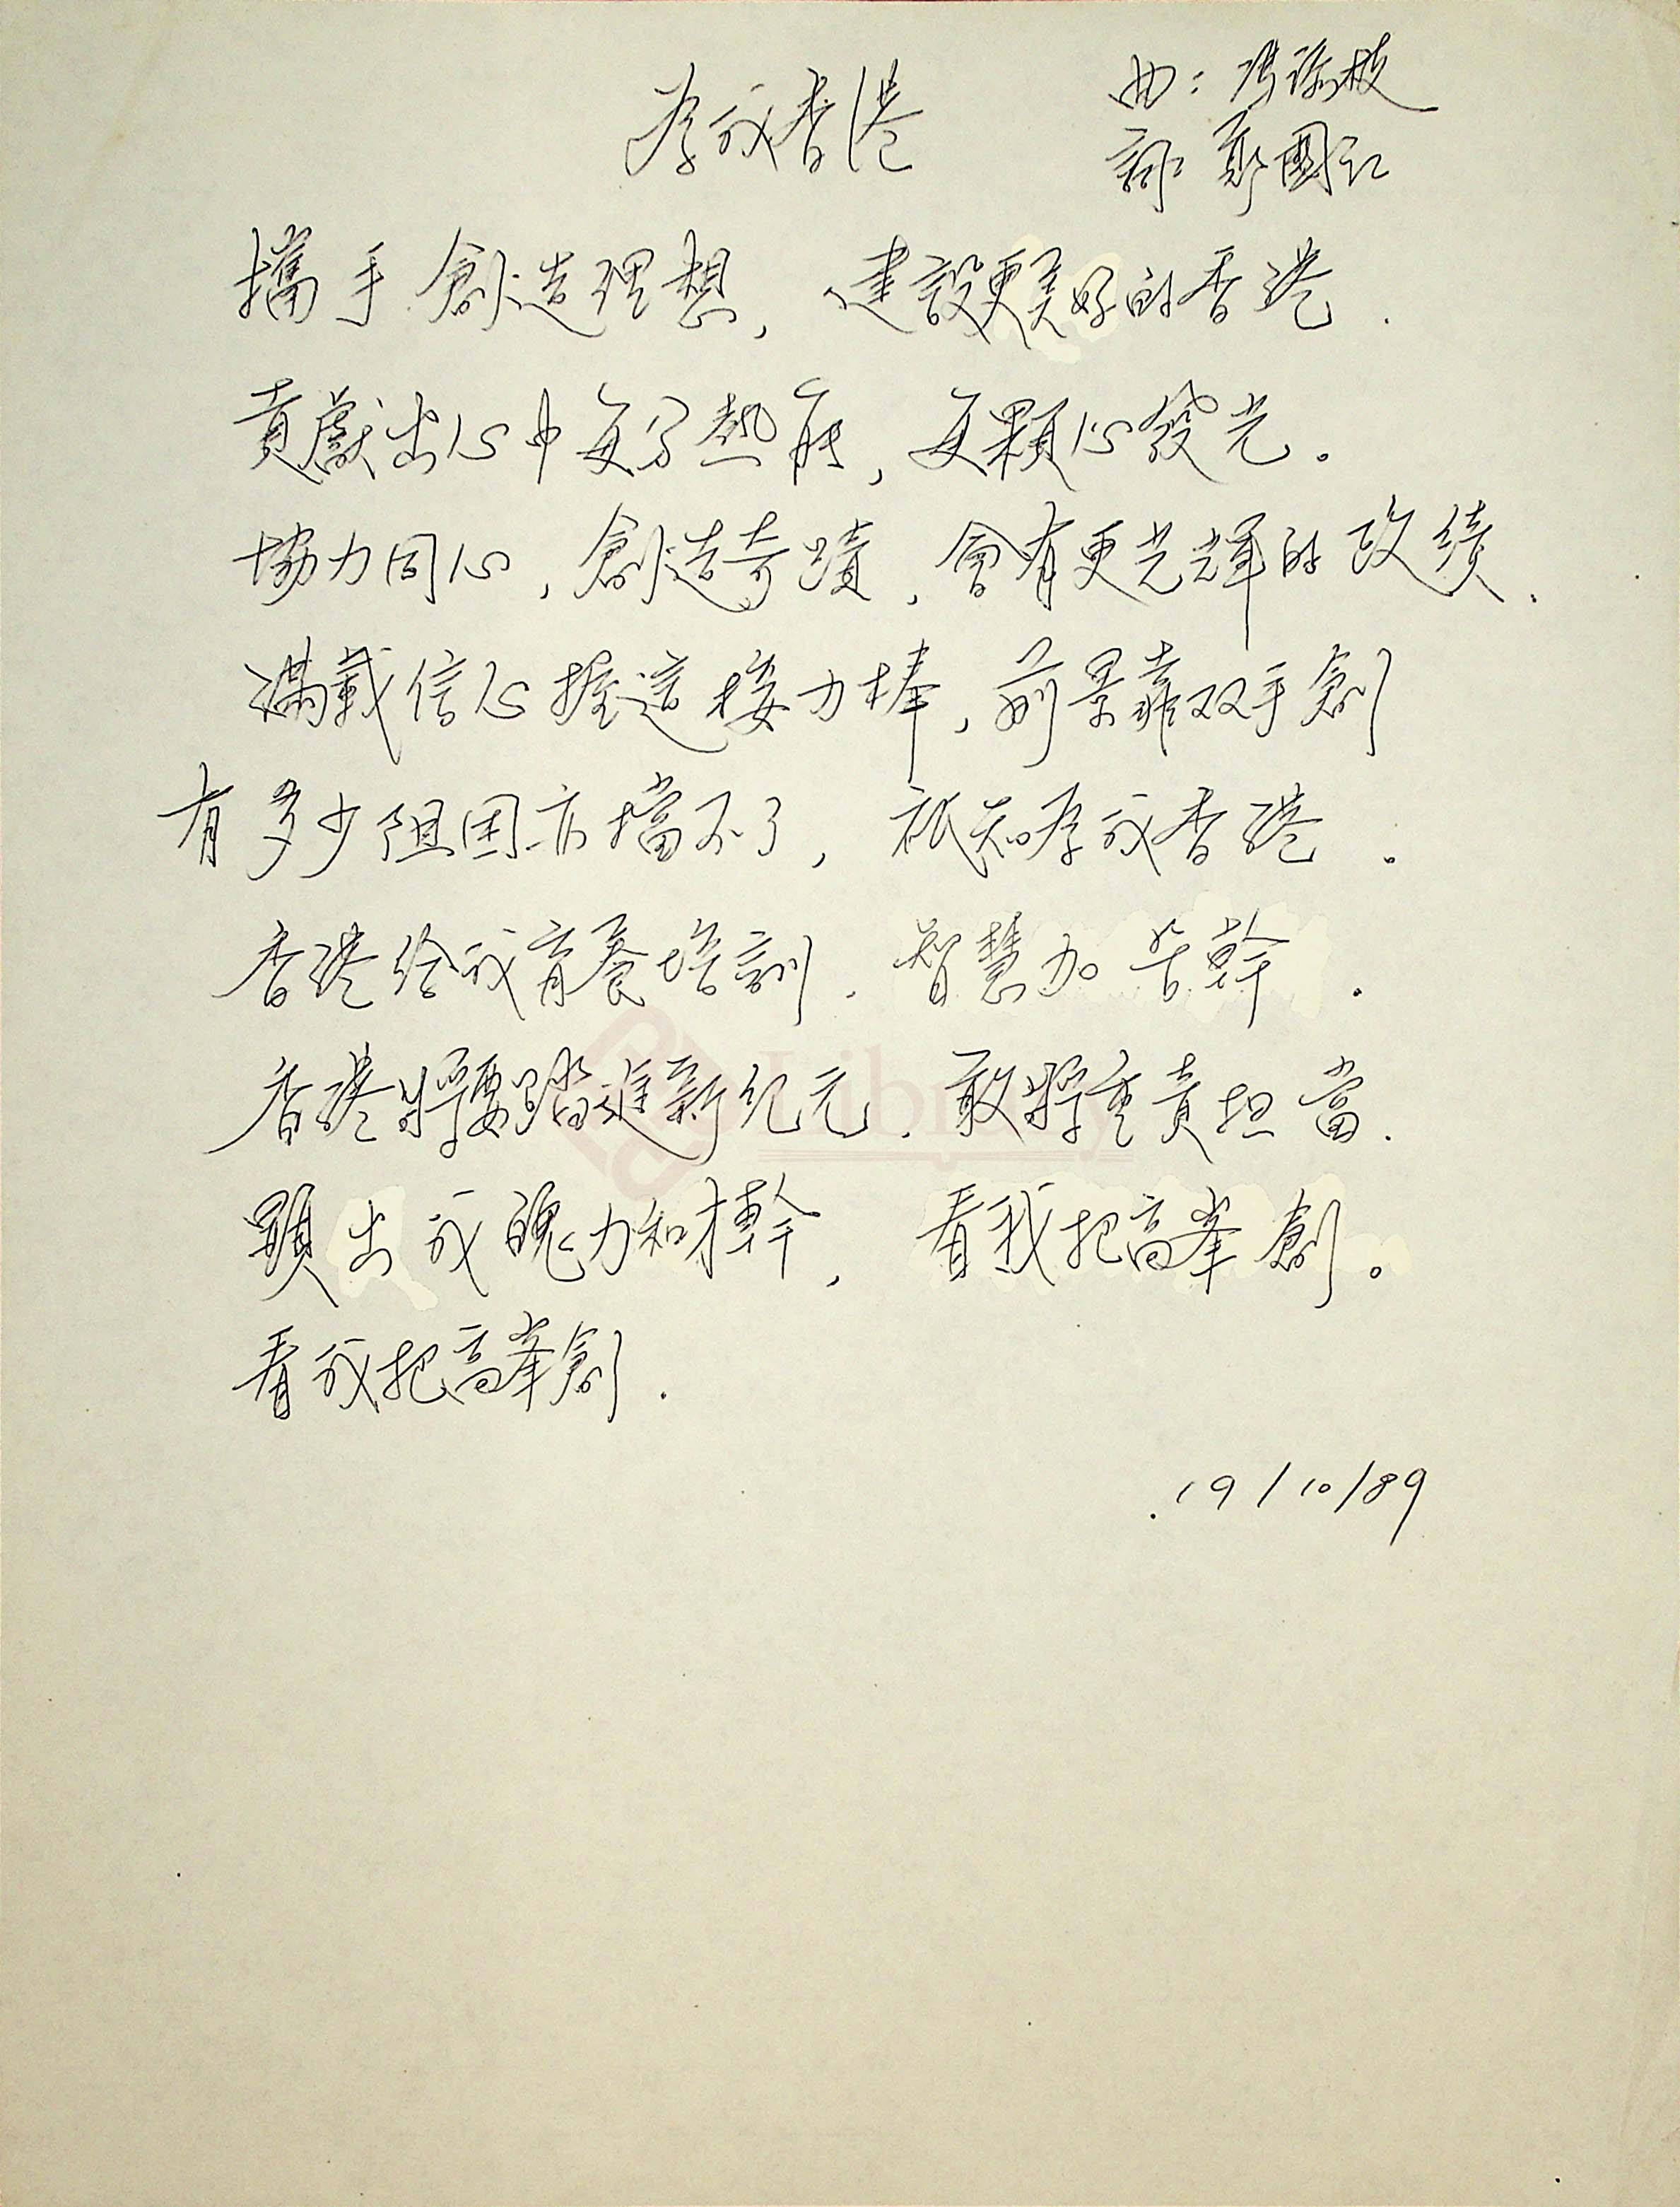 為我香港
曲：馮添枝
詞：鄭國江
攜手創造理想，建設更美好的香港．
貢獻出心中每分熱能，每顆心發光。
協力同心，創造奇蹟，會有更光輝的政績．
滿載信心握這接力棒，前景靠双手創
有多少阻困亦擋不了，祇知為我香港。
香港給我育養培訓．智慧加苦幹．
香港將要踏進新紀元．敢將重責担當．
顯出我魄力和材幹，看我把高峯創。
看我把高峯創．
19/10/89
Library